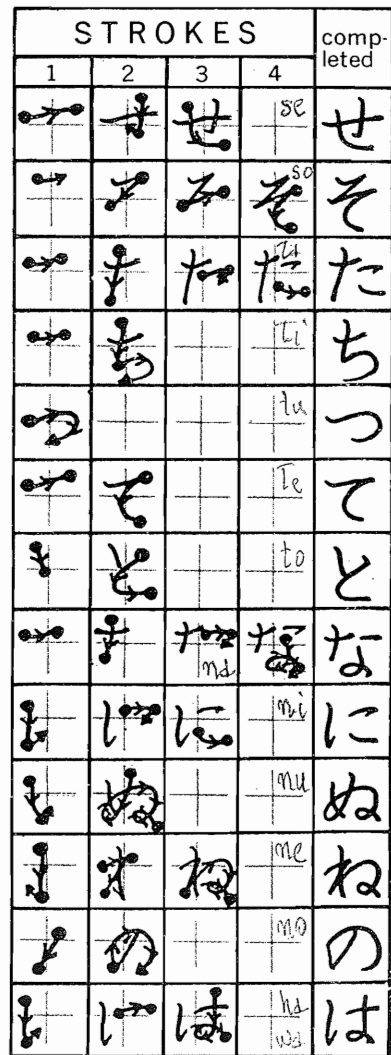 STROKES
comp-
leted
1 2 3 4
se せ
so そ
ta た
ti ち
tu つ
te て
to と
na な
ni に
nu ぬ
ne ね
no の
ha
wa は